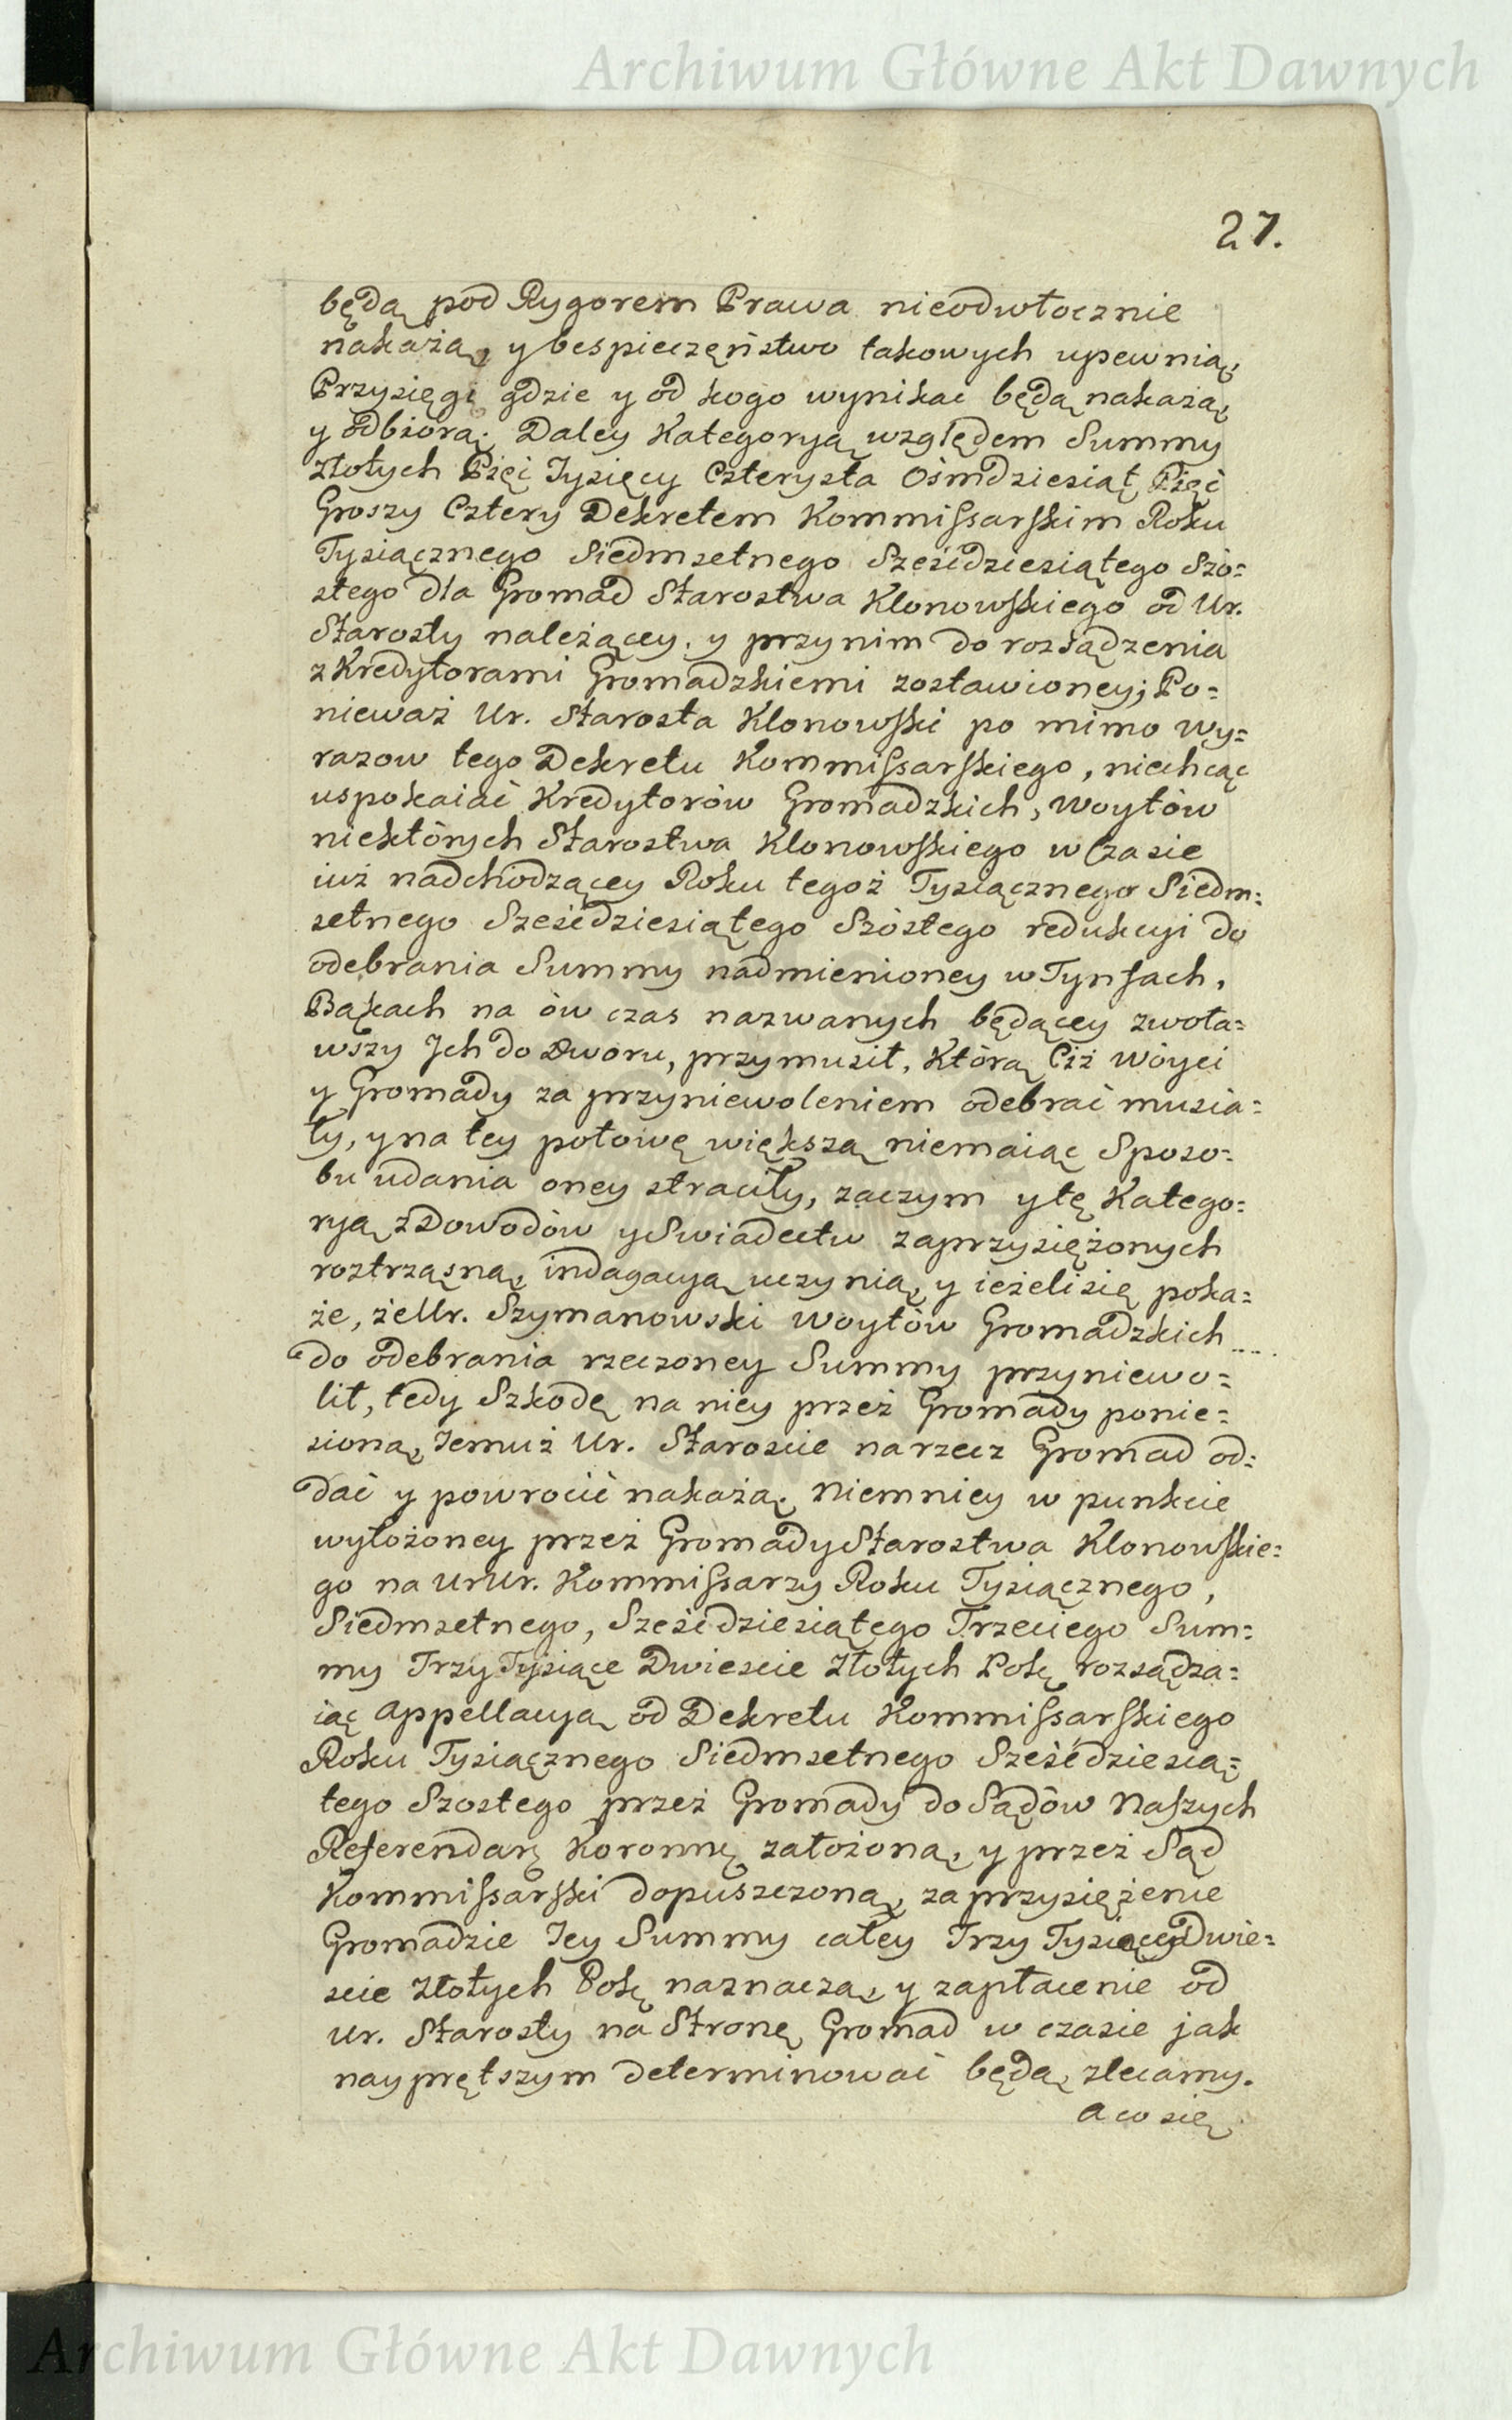 Archiwum Główne Akt Dawnych
27.
będą pod Rygorem Prawa nieodwłocznie
nakażą, y bespieczęństwo takowych upewnią,
Przysięgi gdzie y od kogo wynikac będą nakażą,
y odbiorą; Daley Kategoryą względem Summy
Złotych Pięć Tysięcy Czterysta Ośmdziesiąt Pięć
Groszy Cztery Dekretem Kommissarskim Roku
Tysiącznego Siedmsetnego Sześćdziesiątego Szó=
stego dla Gromad Starostwa Klonowskiego od Ur.
Starosty należącey, y przy nim do rozsądzenia
z Kredytorami Gromadzkiemi zostawioney; Po=
nieważ Ur. Starosta Klonowski po mimo wy=
razow tego Dekretu Kommissarskiego, niechcąc
uspokaiać Kredytorów Gromadzkich, Woytów
niektórych Starostwa Klonowskiego w Czasie
iuż nadchodzącey Roku tegoż Tysiącznego Siedm=
setnego Sześćdziesiątego Szóstego redukcyi do
odebrania Summy nadmienioney w Tynfach,
Bąkach na ów czas nazwanych będącey zwoła=
wszy Jch do Dworu, przymusił, Którą Ciż Wóyci
y Gromady za przyniewoleniem odebrać musia=
ły, y na tey połowę większą niemaiąc Sposo=
bu udania oney straciły, zaczym y tę Katego=
ryą z Dowodów y Swiadectw zaprzysiężonych
roztrząsną, indagacyą uczynią, y ieżeli się poka=
że, że Ur. Szymanowski Woytów Gromadzkich
do odebrania rzeczoney Summy przyniewo=
lił, tedy Szkodę na niey przez Gromady ponie=
sioną, Jemuż Ur. Staroscie na rzecz Gromad od=
dać y powrocić nakażą. Niemniey w punkcie
wyłożoney przez Gromady Starostwa Klonowskie=
go na UrUr. Kommissarzy Roku Tysiącznego,
Siedmsetnego, Sześćdziesiątego Trzeciego Sum=
my Trzy Tysiące Dwiescie Złotych Polę rozsądza=
iąc appellacyą od Dekretu Kommissarskiego
Roku Tysiącznego Siedmsetnego Sześćdziesią=
tego Szostego przez Gromady do Sądów Naszych
Referendarę Koronnę założoną, y przez Sąd
Kommissarski dopuszczoną, zaprzysiężenie
Gromadzie Jey Summy całey Trzy Tysięcy Dwie=
scie Złotych Polę naznaczą, y zapłacenie od
Ur. Starosty na Stronę Gromad w czasie jak
nayprętszym determinować będą, zlecamy.
a co się
Archiwum Główne Akt Dawnych